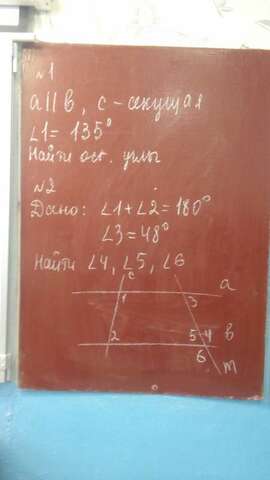 №1
a||b, c - секущая
∠1 = 135°
Найти ост. углы
№2
Дано: ∠1+∠2=180°
∠3=48°
Найти ∠4, ∠5, ∠6
c
a
1
3
2
5
4
b
6
m